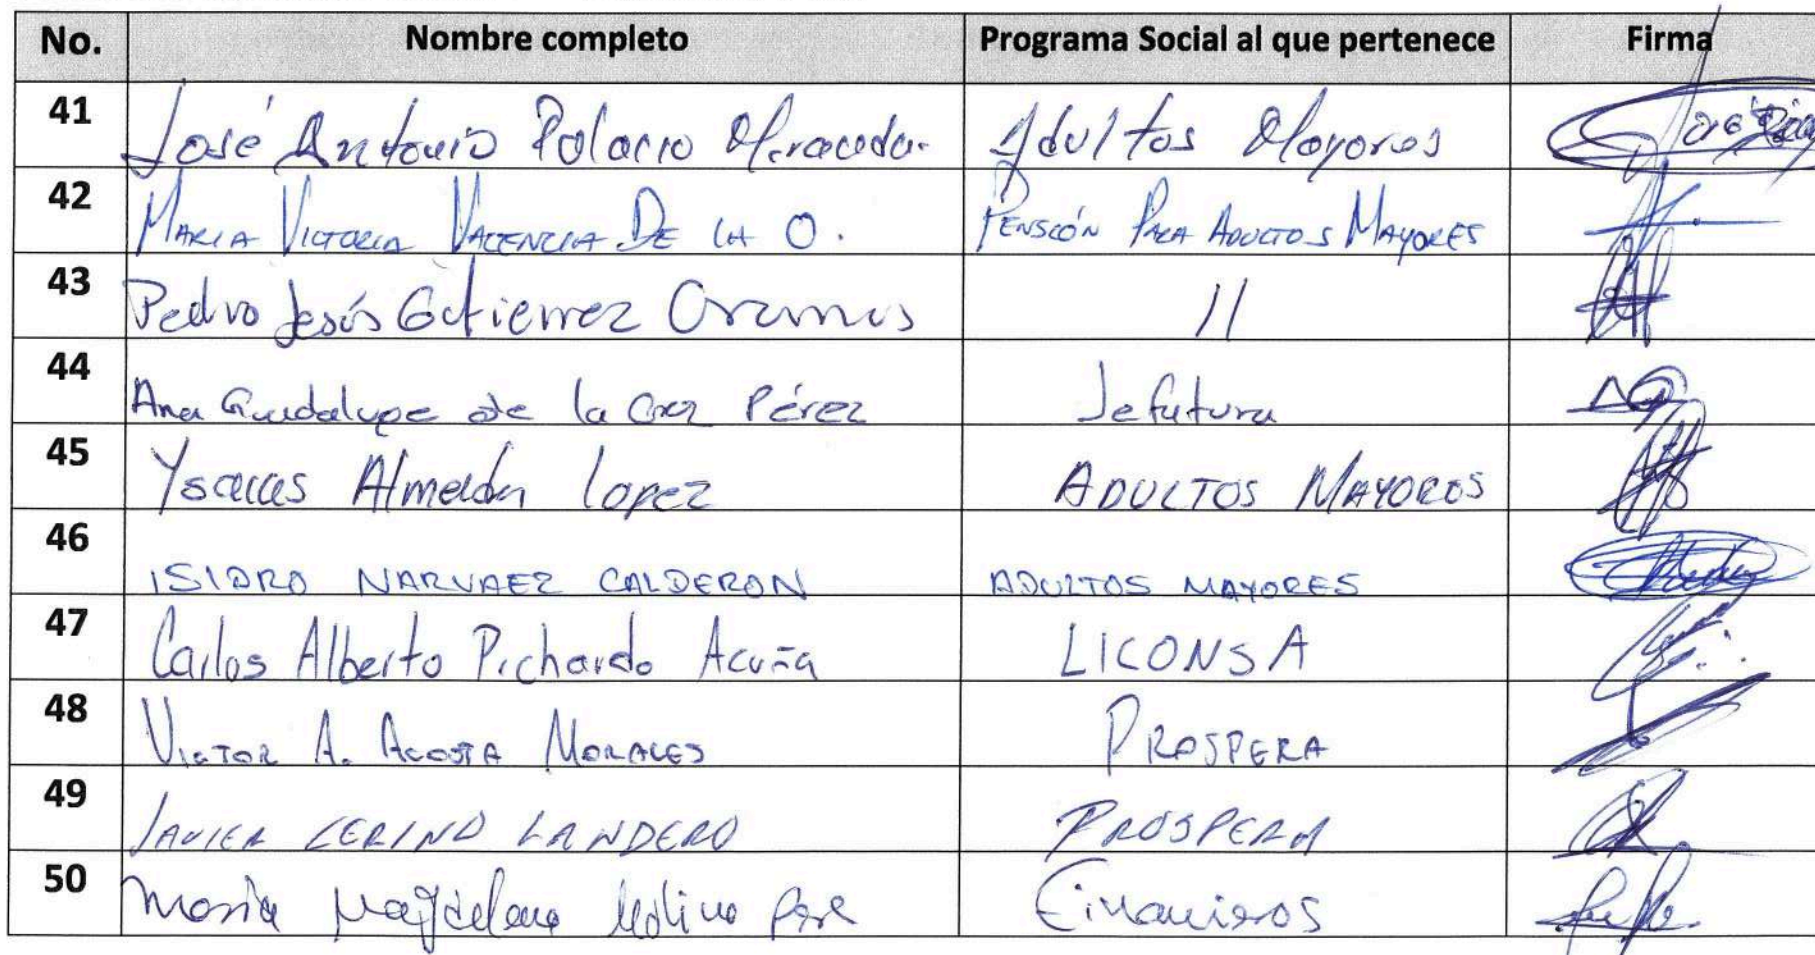 No. Nombre completo Programa Social al que pertenece Firma
41 José Antonio Palacio Adultos Mayores
42 MARIA VICTORIA VALENCIA DE LA O. PENSIÓN PARA ADULTOS MAYORES
43 Pedro Jesús Gutierrez //
44 Ana Guadalupe de la Cruz Pérez Jefatura
45 Almeida Lopez ADULTOS MAYORES
46 ISIDRO NARVAEZ CALDERON ADULTOS MAYORES
47 Carlos Alberto Pichardo Acuña LICONSA
48 VICTOR A. ACOSTA MORALES PROSPERA
49 JAVIER CERINO LANDERO PROSPERA
50 Maria Magdalena